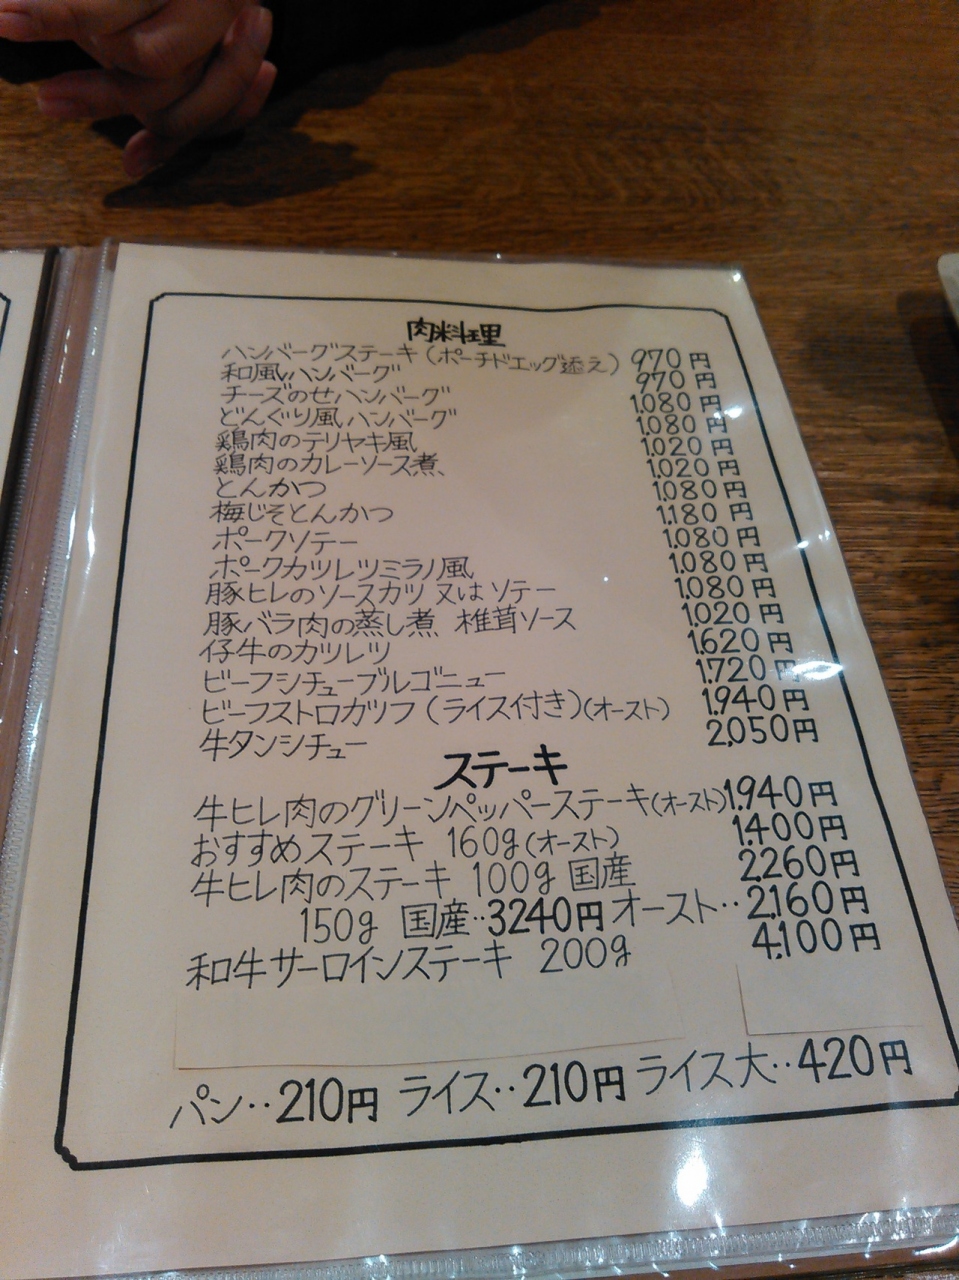 肉料理
ハンバーグステーキ(ポーチドエッグ添え) 970円
和風ハンバーグ 970円
チーズのせハンバーグ 1.080円
どんぐり風ハンバーグ 1.080円
鶏肉のテリヤキ風 1.020円
鶏肉のカレーソース煮 1.020円
とんかつ 1.080円
梅じそとんかつ 1.180円
ポークソテー 1.080円
ポークカツレツミラノ風 1.080円
豚ヒレのソースカツ 又は ソテー 1.080円
豚バラ肉の蒸し煮 椎茸ソース 1.020円
仔牛のカツレツ 1.620円
ビーフシチューブルゴニュー 1.720円
ビーフストロガツフ(ライス付き)(オースト) 1.940円
牛タンシチュー 2,050円
ステーキ
牛ヒレ肉のグリーンペッパーステーキ(オースト) 1.940円
おすすめステーキ 160g(オースト) 1.400円
牛ヒレ肉のステーキ 100g 国産 2.260円
150g 国産‥3240円 オースト‥2.160円
和牛サーロインステーキ 200g 4.100円
パン‥210円 ライス‥210円 ライス大‥420円